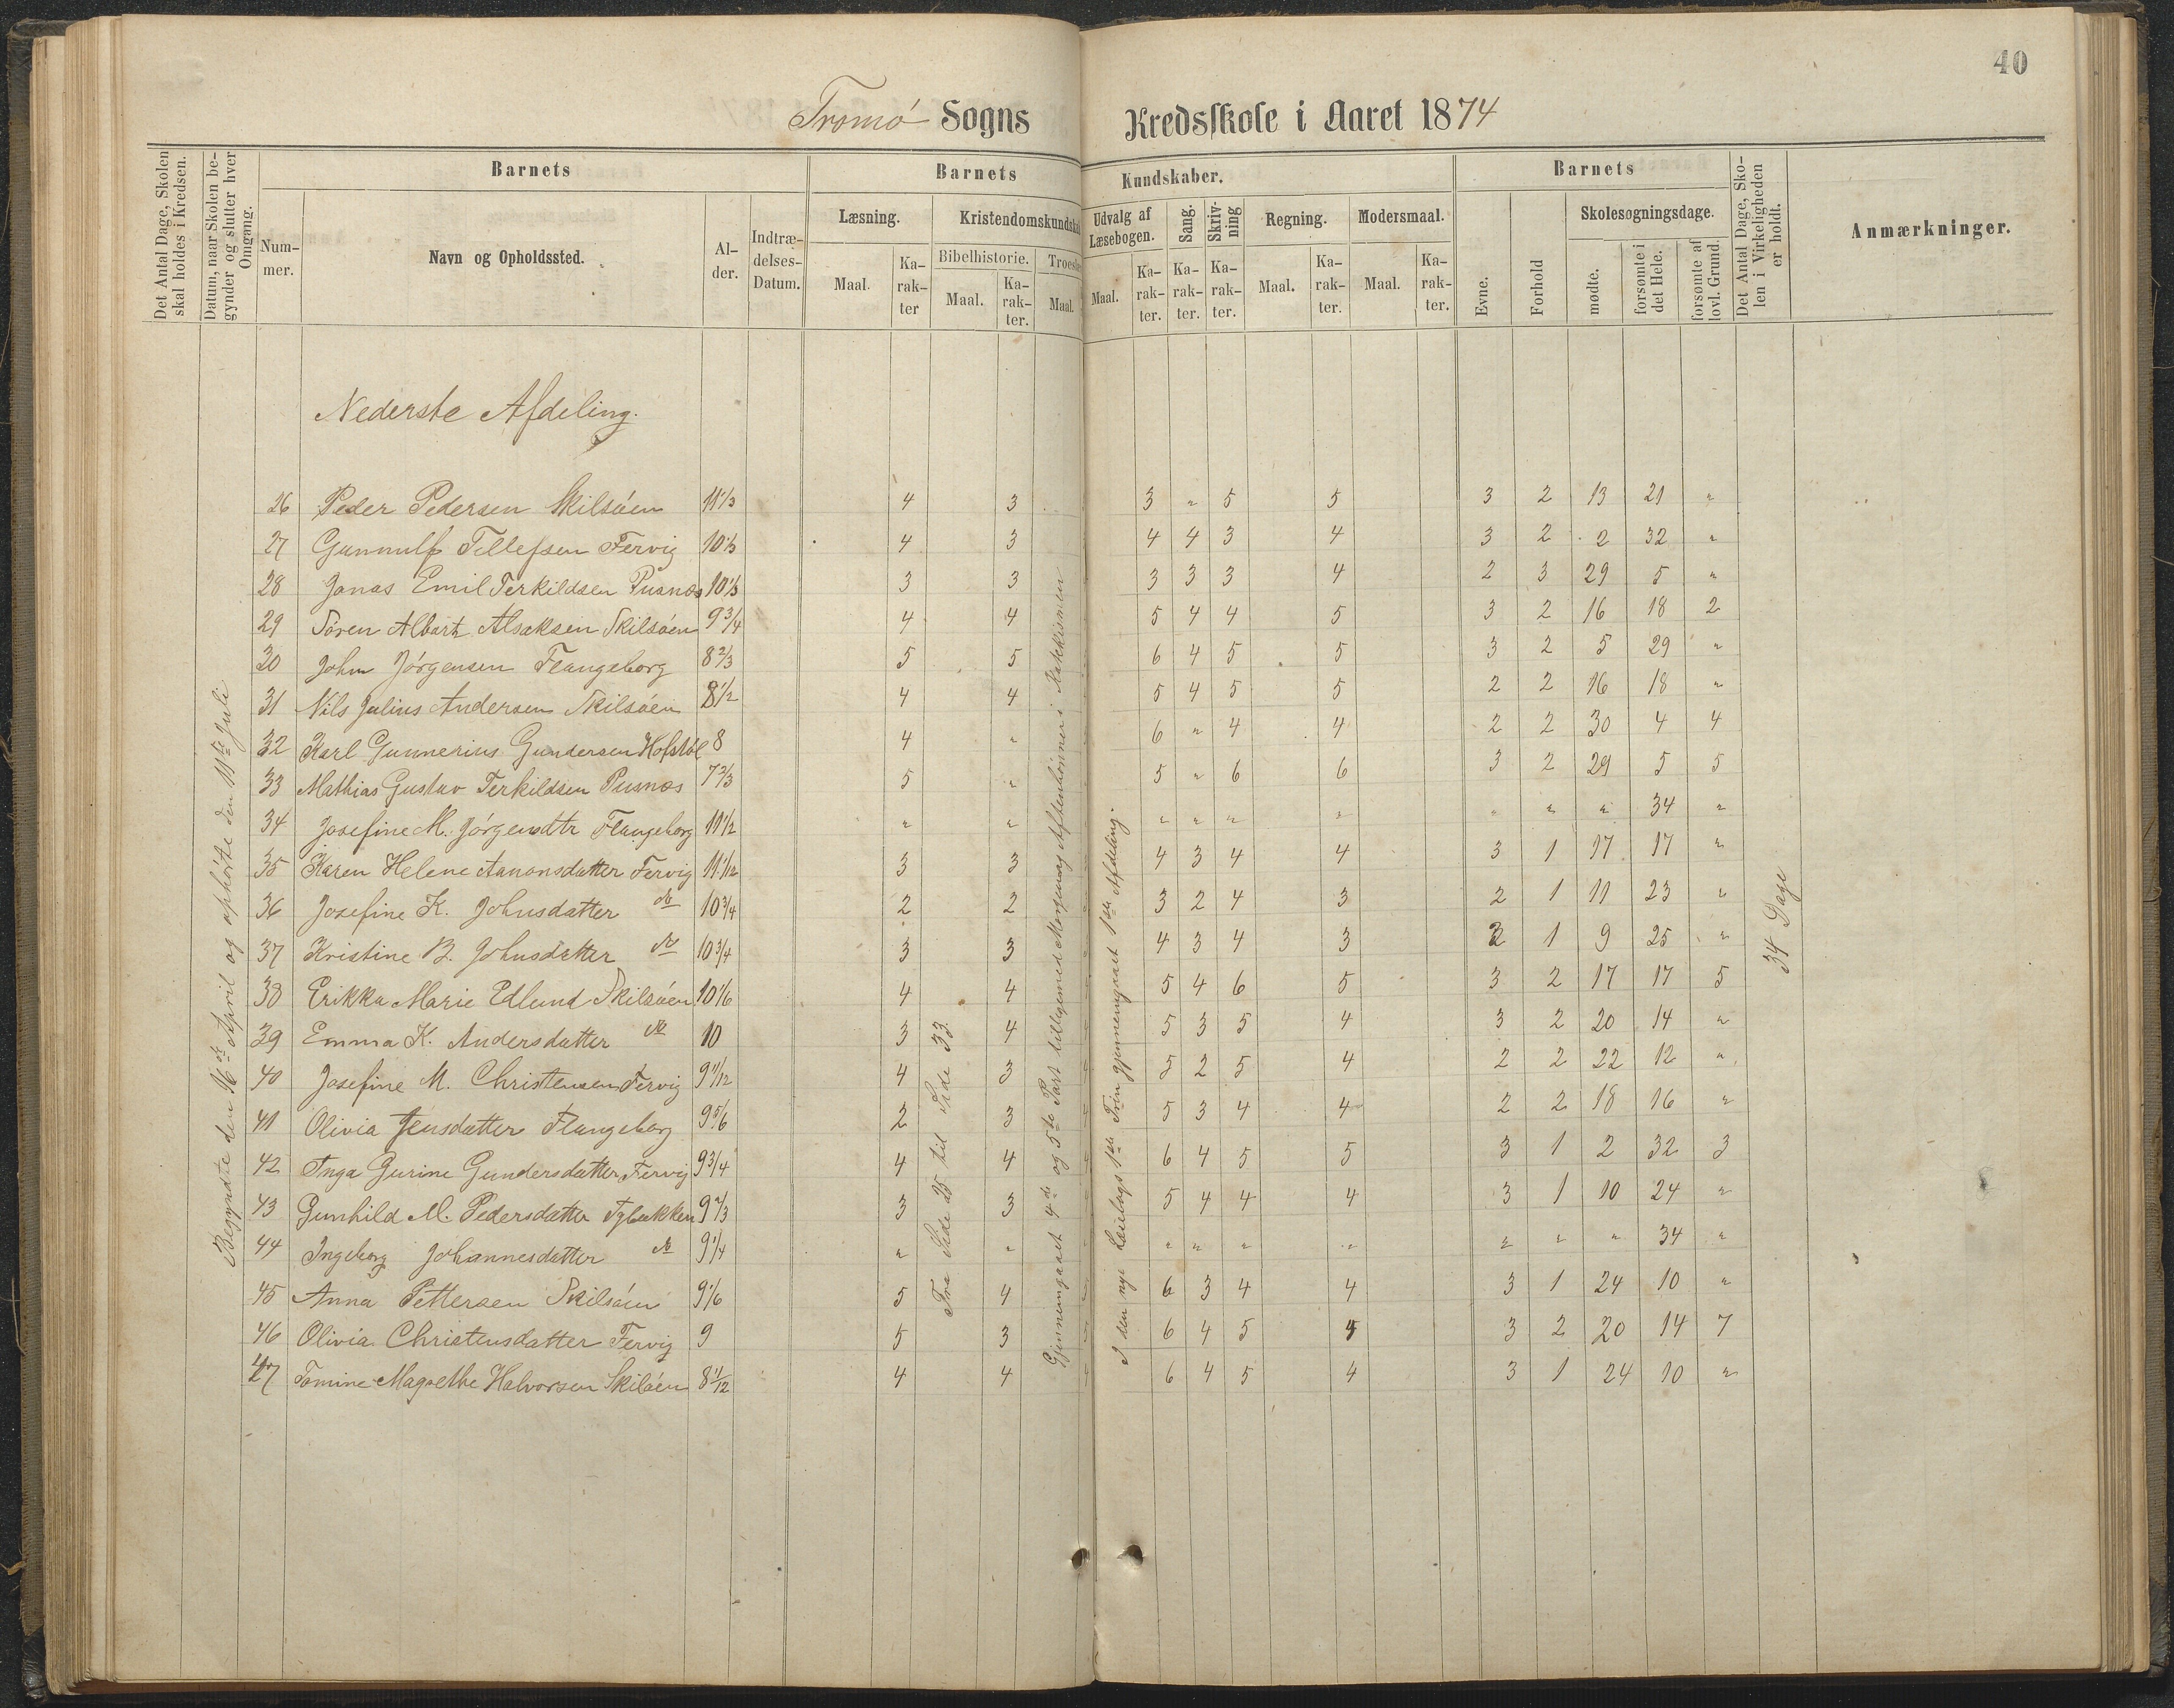 40
Tromö Sogns Kredsskole i Aaret 1874
Det Antal Dage, Skolen skal holdes i Kredsen.
Datum, naar Skolen begynder og slutter hver Omgang.
Barnets
Num-mer.
Navn og Opholdssted.
Al-der.
Indtræ-delses-Datum.
Barnets Kundskaber.
Læsning.
Maal.
Ka-rak-ter
Kristendomskundskab
Bibelhistorie.
Maal.
Ka-rak-ter.
Troeslære
Maal.
Udvalg af Læsebogen.
Maal.
Ka-rak-ter.
Sang.
Ka-rak-ter.
Skriv-ning
Ka-rak-ter.
Regning.
Maal.
Ka-rak-ter.
Modersmaal.
Maal.
Ka-rak-ter.
Barnets
Evne.
Forhold
Skolesøgningsdage.
mødte.
forsømte i det Hele.
forsømte af lovl. Grund.
Det Antal Dage, Sko-len i Virkeligheden er holdt.
Anmærkninger.
Nederste Afdeling.
26 Peder Pedersen Skilsöen 11 1/3 4 3 3 " 5 5 3 2 13 21 "
27 Gunnulf Tellefsen Færvig 10 1/3 4 3 4 4 3 4 3 2 2 32 "
28 Jonas Emil Terkildsen Pusnæs 10 1/3 3 3 3 3 3 4 2 3 29 5 "
29 Sören Albert Alsaksen Skilsöen 9 3/4 4 4 5 4 4 5 3 2 16 18 2
30 John Jörgensen Flangeborg 8 2/3 5 5 6 4 5 5 3 2 5 29 "
31 Nils Julius Andersen Skilsöen 8 1/2 4 4 5 4 5 5 2 2 16 18 "
32 Karl Gunnerius Gundersen Hofstöl 8 4 " 6 " 4 4 2 2 30 4 4
33 Mathias Gustav Terkildsen Pusnæs 7 2/3 5 " 5 " 6 6 3 2 29 5 5
34 Josefine M. Jörgensdtr Flangeborg 11 1/2 " " " " " " " " " 34 "
35 Karen Helene Aanonsdatter Færvig 11 1/12 3 3 4 3 4 4 3 1 17 17 "
36 Josefine K. Johnsdatter do 10 3/4 2 2 3 2 4 3 2 1 11 23 "
37 Kristine B. Johnsdatter do 10 3/4 3 3 4 3 4 3 2 1 9 25 "
38 Erikka Marie Edlund Skilsöen 10 1/6 4 4 5 4 6 5 3 2 17 17 5
39 Emma K. Andersdatter do 10 3 4 5 3 5 4 3 2 20 14 "
40 Josefine M. Christensen Færvig 9 11/12 4 3 5 2 5 4 2 2 22 12 "
41 Olivia Jensdatter Flangeborg 9 5/6 2 3 5 3 4 4 2 2 18 16 "
42 Inga Gurine Gundersdatter Færvig 9 3/4 4 4 6 4 5 5 3 1 2 32 3
43 Gunhild M. Pedersdatter Tybakken 9 2/3 3 3 5 4 4 4 3 1 10 24 "
44 Ingeborg Johannesdatter do 9 1/4 " " " " " " " " " 34 "
45 Anna Pettersen Skilsöen 9 1/6 5 4 6 3 4 4 3 1 24 10 "
46 Olivia Christensdatter Færvig 9 5 3 6 4 5 5 3 2 20 14 7
47 Tomine Magrethe Halvorsen Skilsöen 8 1/12 4 4 6 4 5 4 3 1 24 10 "
Begyndte den 16de April og ophörte den 11te Juli
Fra Side 25 til Side 33.
Gjennemgaaet 4de og 5te Part tilligemed Morgen og Aftenbönnen i Katekismen
I den nye Læsebogs 1ste Trin gjennemgaaet 1ste Afdeling.
34 Dage